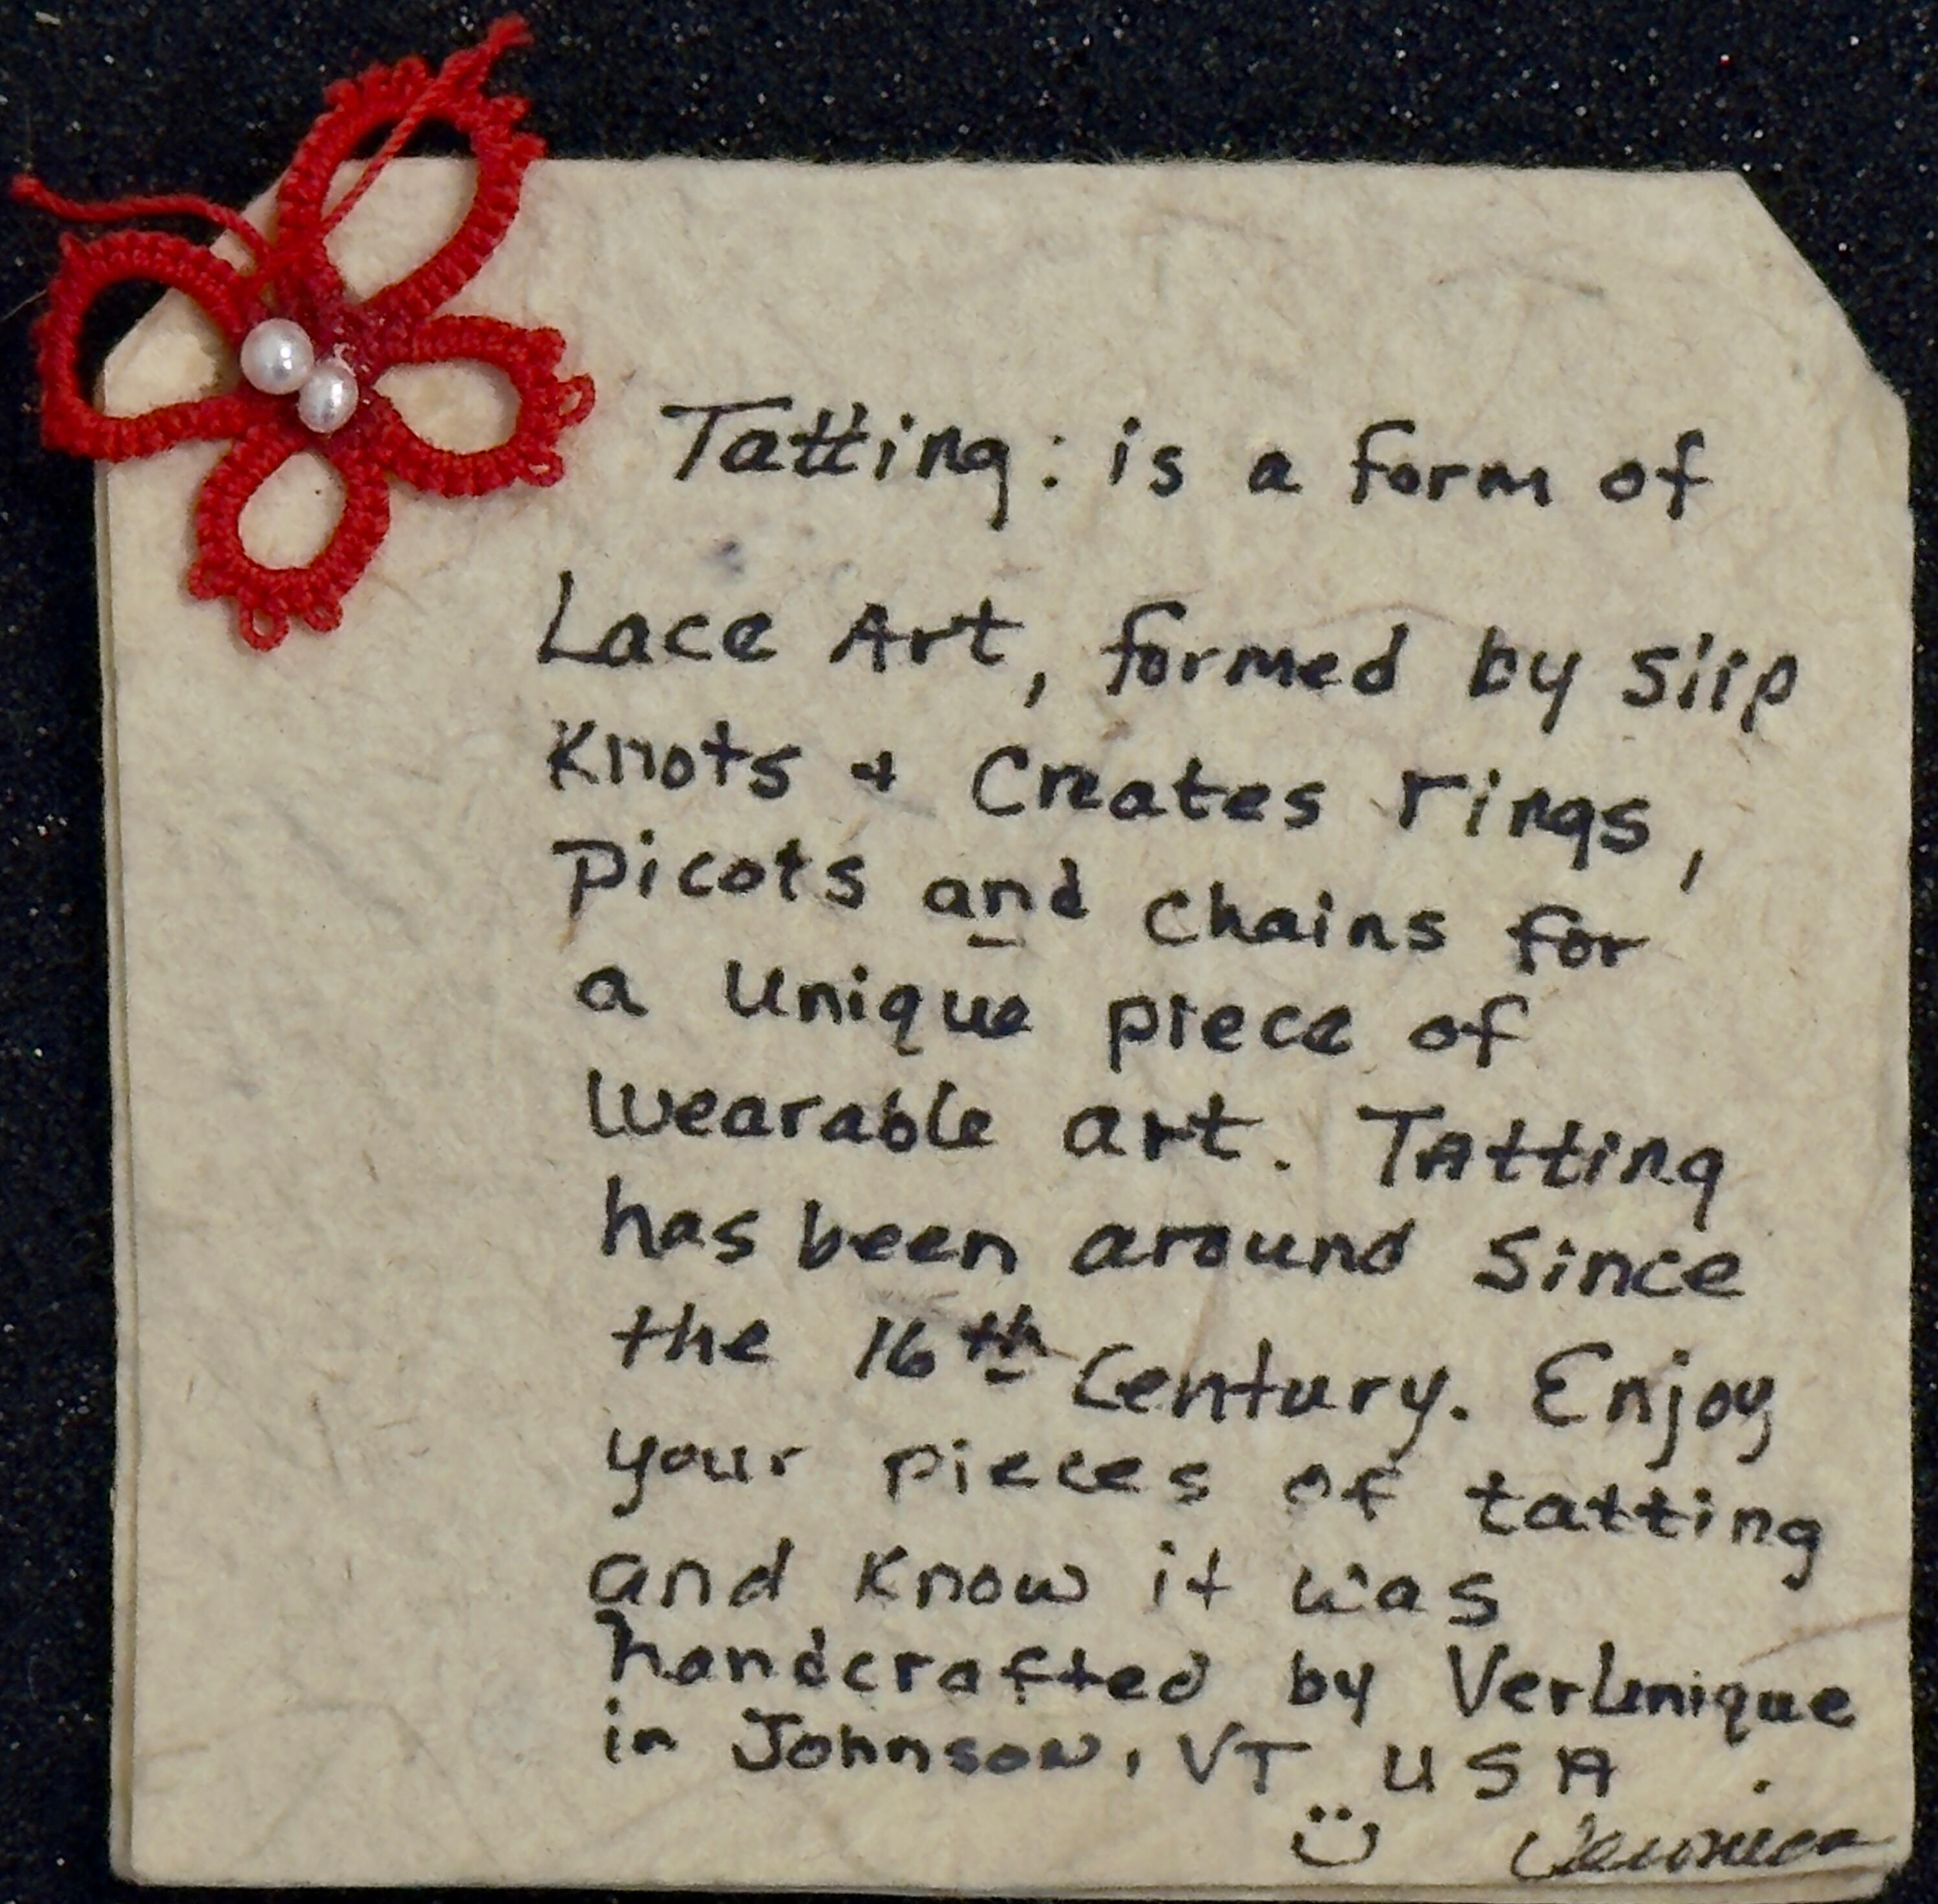 Tatting: is a form of
Lace Art, formed by slip
Knots + Creates rings,
Picots and Chains for
a Unique piece of
Wearable art. Tatting
has been around Since
the 16th Century. Enjoy
your pieces of tatting
and Know it was
handcrafted by VerUnique
in Johnson, VT USA.
Veronica